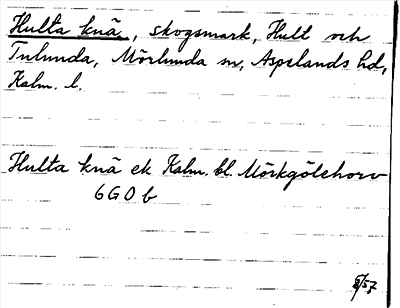 Hulta knä, skogsmark, Hult och
Tulunda, Mörlunda sn, Aspelands hd,
Kalm. l.
Hulta knä ek Kalm. bl. Mörkgölehorv
6G0b
8/57